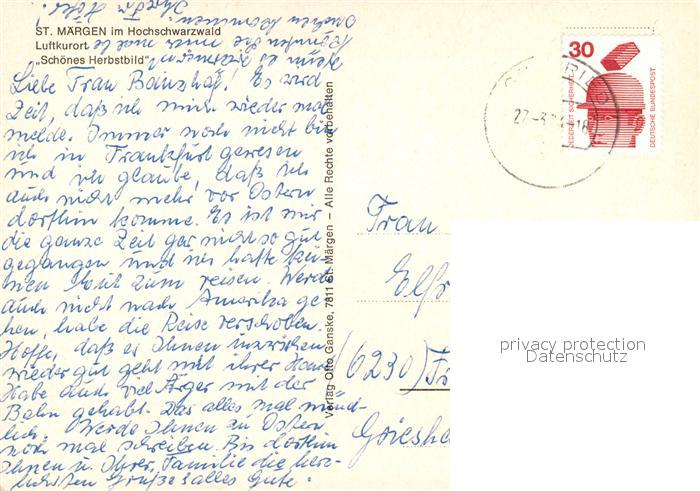 ST. MÄRGEN im Hochschwarzwald
Luftkurort
„Schönes Herbstbild"
Liebe Frau Banzhaf! Es wird
Zeit, daß ich mich wieder mal
melde. Immer noch nicht bin
ich in Frankfurt gewesen
und ich glaube, daß ich
auch nicht mehr vor Ostern
dorthin komme. Es ist mir
die ganze Zeit gar nicht so gut
gegangen und ich hatte kei-
nen Mut zum reisen. Werde
auch nicht nach Amerika ge-
hen, habe die Reise verschoben.
Hoffe, daß es Ihnen inzwischen
wieder gut geht mit ihrer Hand
Habe auch viel Ärger mit der
Bahn gehabt. Das alles mal münd-
lich. Werde Ihnen zu Ostern
noch mal schreiben. Bis dorthin
Ihnen u. Ihrer Familie die herz-
lichsten Grüße & alles Gute.
Verlag Otto Ganske, 7811 St. Märgen – Alle Rechte vorbehalten
30
JEDERZEIT SICHERHEIT
DEUTSCHE BUNDESPOST
Frau
Elfr
(6230) Fr
Griesh
privacy protection
Datenschutz